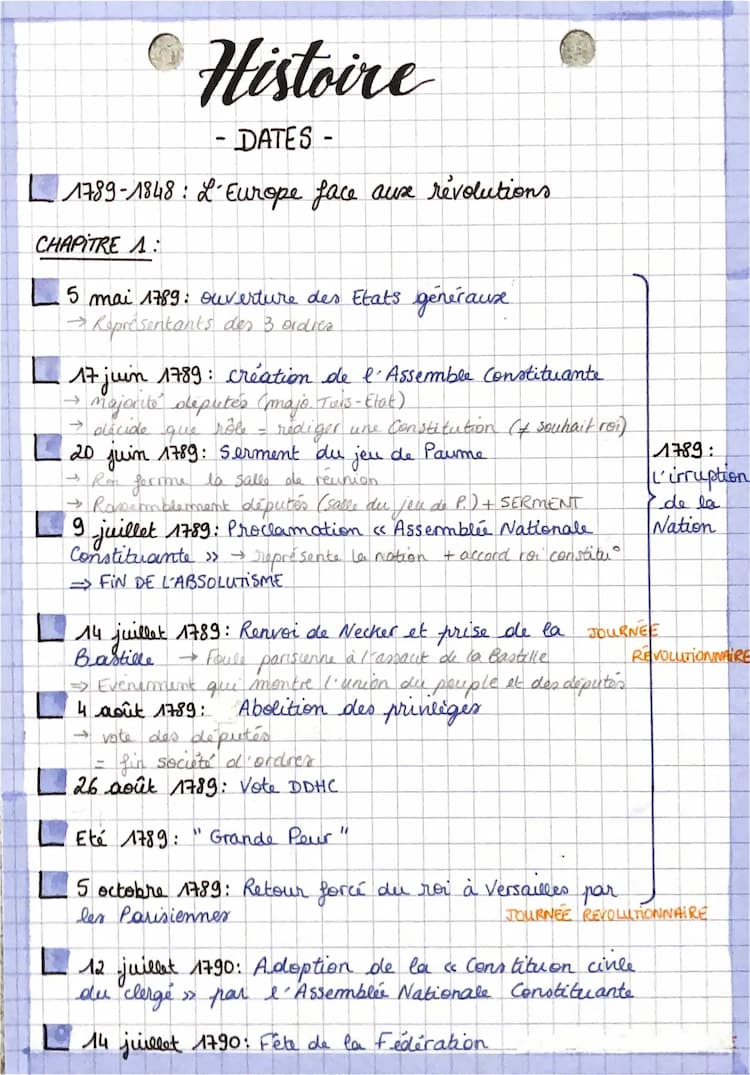 Histoire
- DATES -
1789-1848 : L'Europe face aux révolutions
CHAPITRE 1 :
5 mai 1789 : ouverture des Etats généraux
→ Représentants des 3 ordres
17 juin 1789 : création de l'Assemble Constituante
→ Majorité députés (majo. Tiers-Etat)
→ décide que rôle = rédiger une Constitution (≠ souhait roi)
20 juin 1789 : Serment du jeu de Paume
→ Roi ferme la salle de réunion
→ Rassemblement députés (salle du jeu de P.) + SERMENT
9 juillet 1789 : Proclamation « Assemblée Nationale
Constituante » → représente la nation + accord roi constitu°
⇒ FIN DE L'ABSOLUTISME
1789 :
L'irruption
de la
Nation
14 juillet 1789 : Renvoi de Necker et prise de la JOURNÉE
Bastille → Foule parisienne à l'assaut de la Bastille RÉVOLUTIONNAIRE
⇒ Evènement qui montre l'union du peuple et des députés
4 août 1789 : Abolition des privilèges
→ vote des députés
= fin société d'ordres
26 août 1789 : Vote DDHC
Eté 1789 : " Grande Peur "
5 octobre 1789 : Retour forcé du roi à Versailles par
les Parisiennes JOURNÉE REVOLUTIONNAIRE
12 juillet 1790 : Adoption de la « Constituon civile
du clergé » par l'Assemblée Nationale Constituante
14 juillet 1790 : Fête de la Fédération